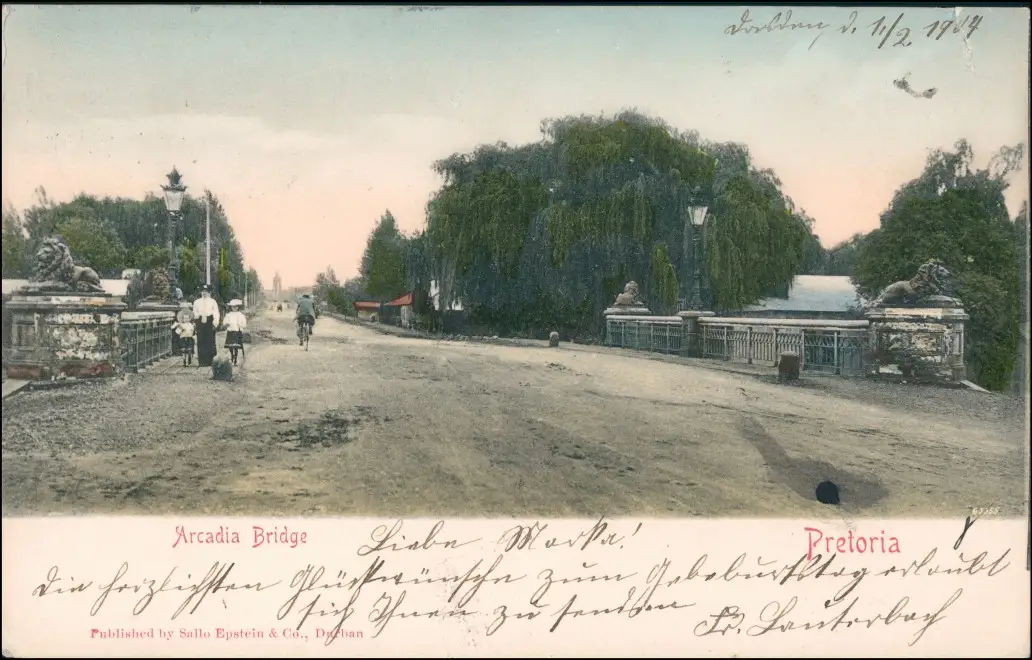 Dresden d. 1./2. 1904
63555
Arcadia Bridge
Pretoria
Liebe Marka!
Die herzlichsten Glückwünsche zum Gebeburtstag erlaubt
sich Ihnen zu senden Fr. Lauterbach
Published by Sallo Epstein & Co., Durban